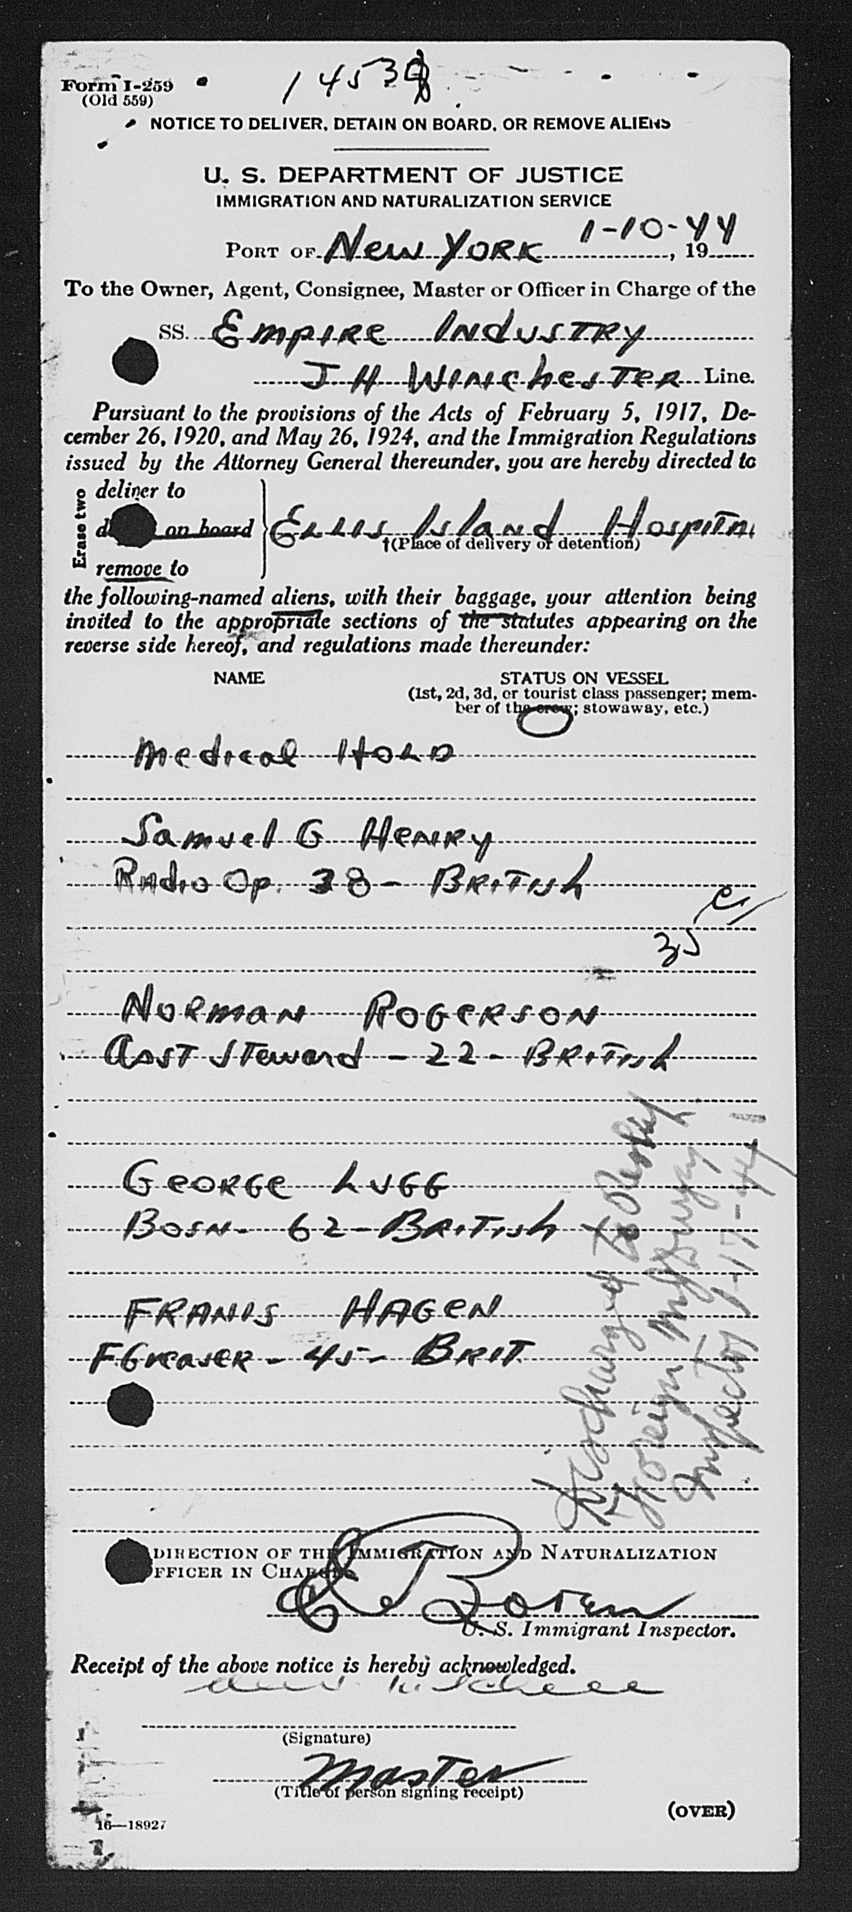 Form I-259
(Old 559)
NOTICE TO DELIVER, DETAIN ON BOARD, OR REMOVE ALIENS
U. S. DEPARTMENT OF JUSTICE
IMMIGRATION AND NATURALIZATION SERVICE
PORT OF New York 1-10-44, 19
To the Owner, Agent, Consignee, Master or Officer in Charge of the
SS. Empire Industry
J H Winchester Line.
Pursuant to the provisions of the Acts of February 5, 1917, De-
cember 26, 1920, and May 26, 1924, and the Immigration Regulations
issued by the Attorney General thereunder, you are hereby directed to
Erase two
deliver to
on board Ellis Island Hospital
†(Place of delivery or detention)
remove to
the following-named aliens, with their baggage, your attention being
invited to the appropriate sections of the statutes appearing on the
reverse side hereof, and regulations made thereunder:
NAME STATUS ON VESSEL
(1st, 2d, 3d, or tourist class passenger; mem-
ber of the crew; stowaway, etc.)
Medical Hold
Samuel G Henry
Radio Op. 38 - British
35
Norman Rogerson
Asst Steward - 22 - British
George Lugg
Bosn - 62 - British
Franis Hagen
F Greaser - 45 - Brit
Discharged to Reship
Foreign
Inspector 1-17-44
DIRECTION OF THE IMMIGRATION AND NATURALIZATION
OFFICER IN CHARGE
U. S. Immigrant Inspector.
Receipt of the above notice is hereby acknowledged.
(Signature)
Master
(Title of person signing receipt)
(OVER)
16—18927